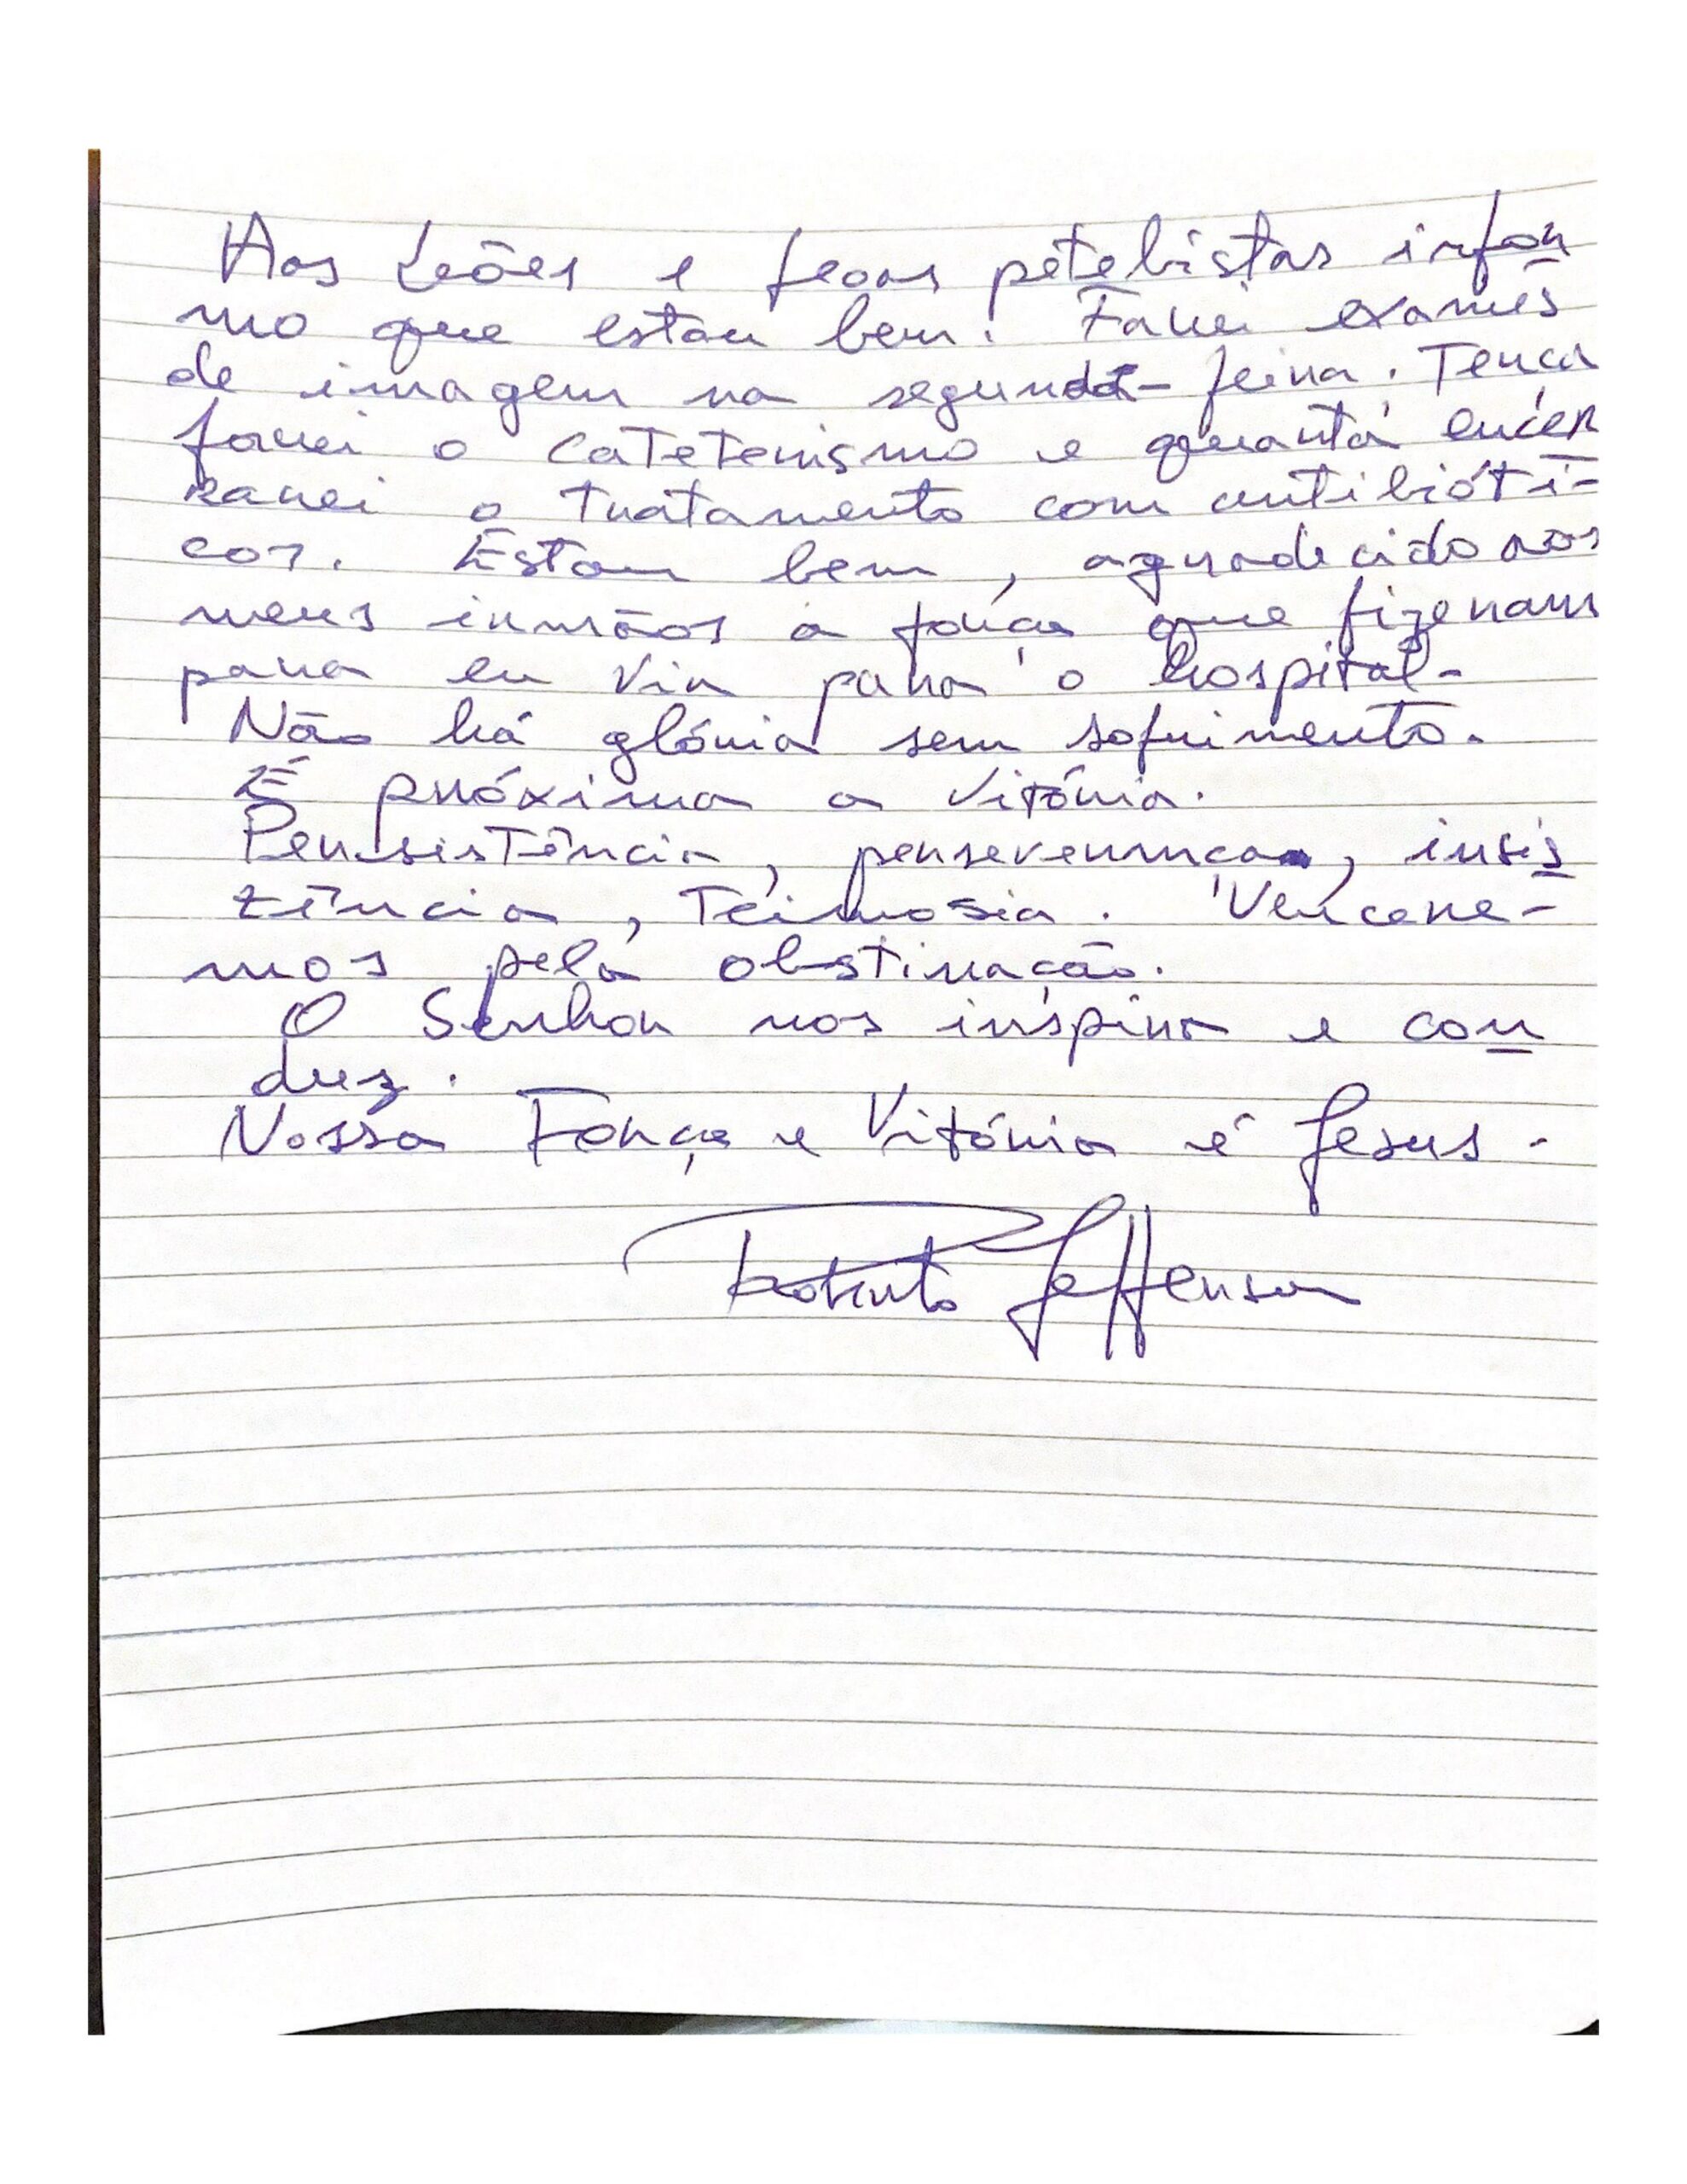 Aos Leões e Leoas petebistas infor
mo que estou bem. Farei exames
de imagem na segunda-feira. Terça
farei o cateterismo e quarta encer
rarei o tratamento com antibióti-
cos. Estou bem, agradecido aos
meus irmãos a força que fizeram
para eu vir para o hospital.
Não há glória sem sofrimento.
É próxima a Vitória.
Persistência, perseverança, insis
tência, Teimosia. Vencere-
mos pela obstinação.
O Senhor nos inspira e con
duz.
Nossa Força e Vitória é Jesus.
Roberto Jefferson